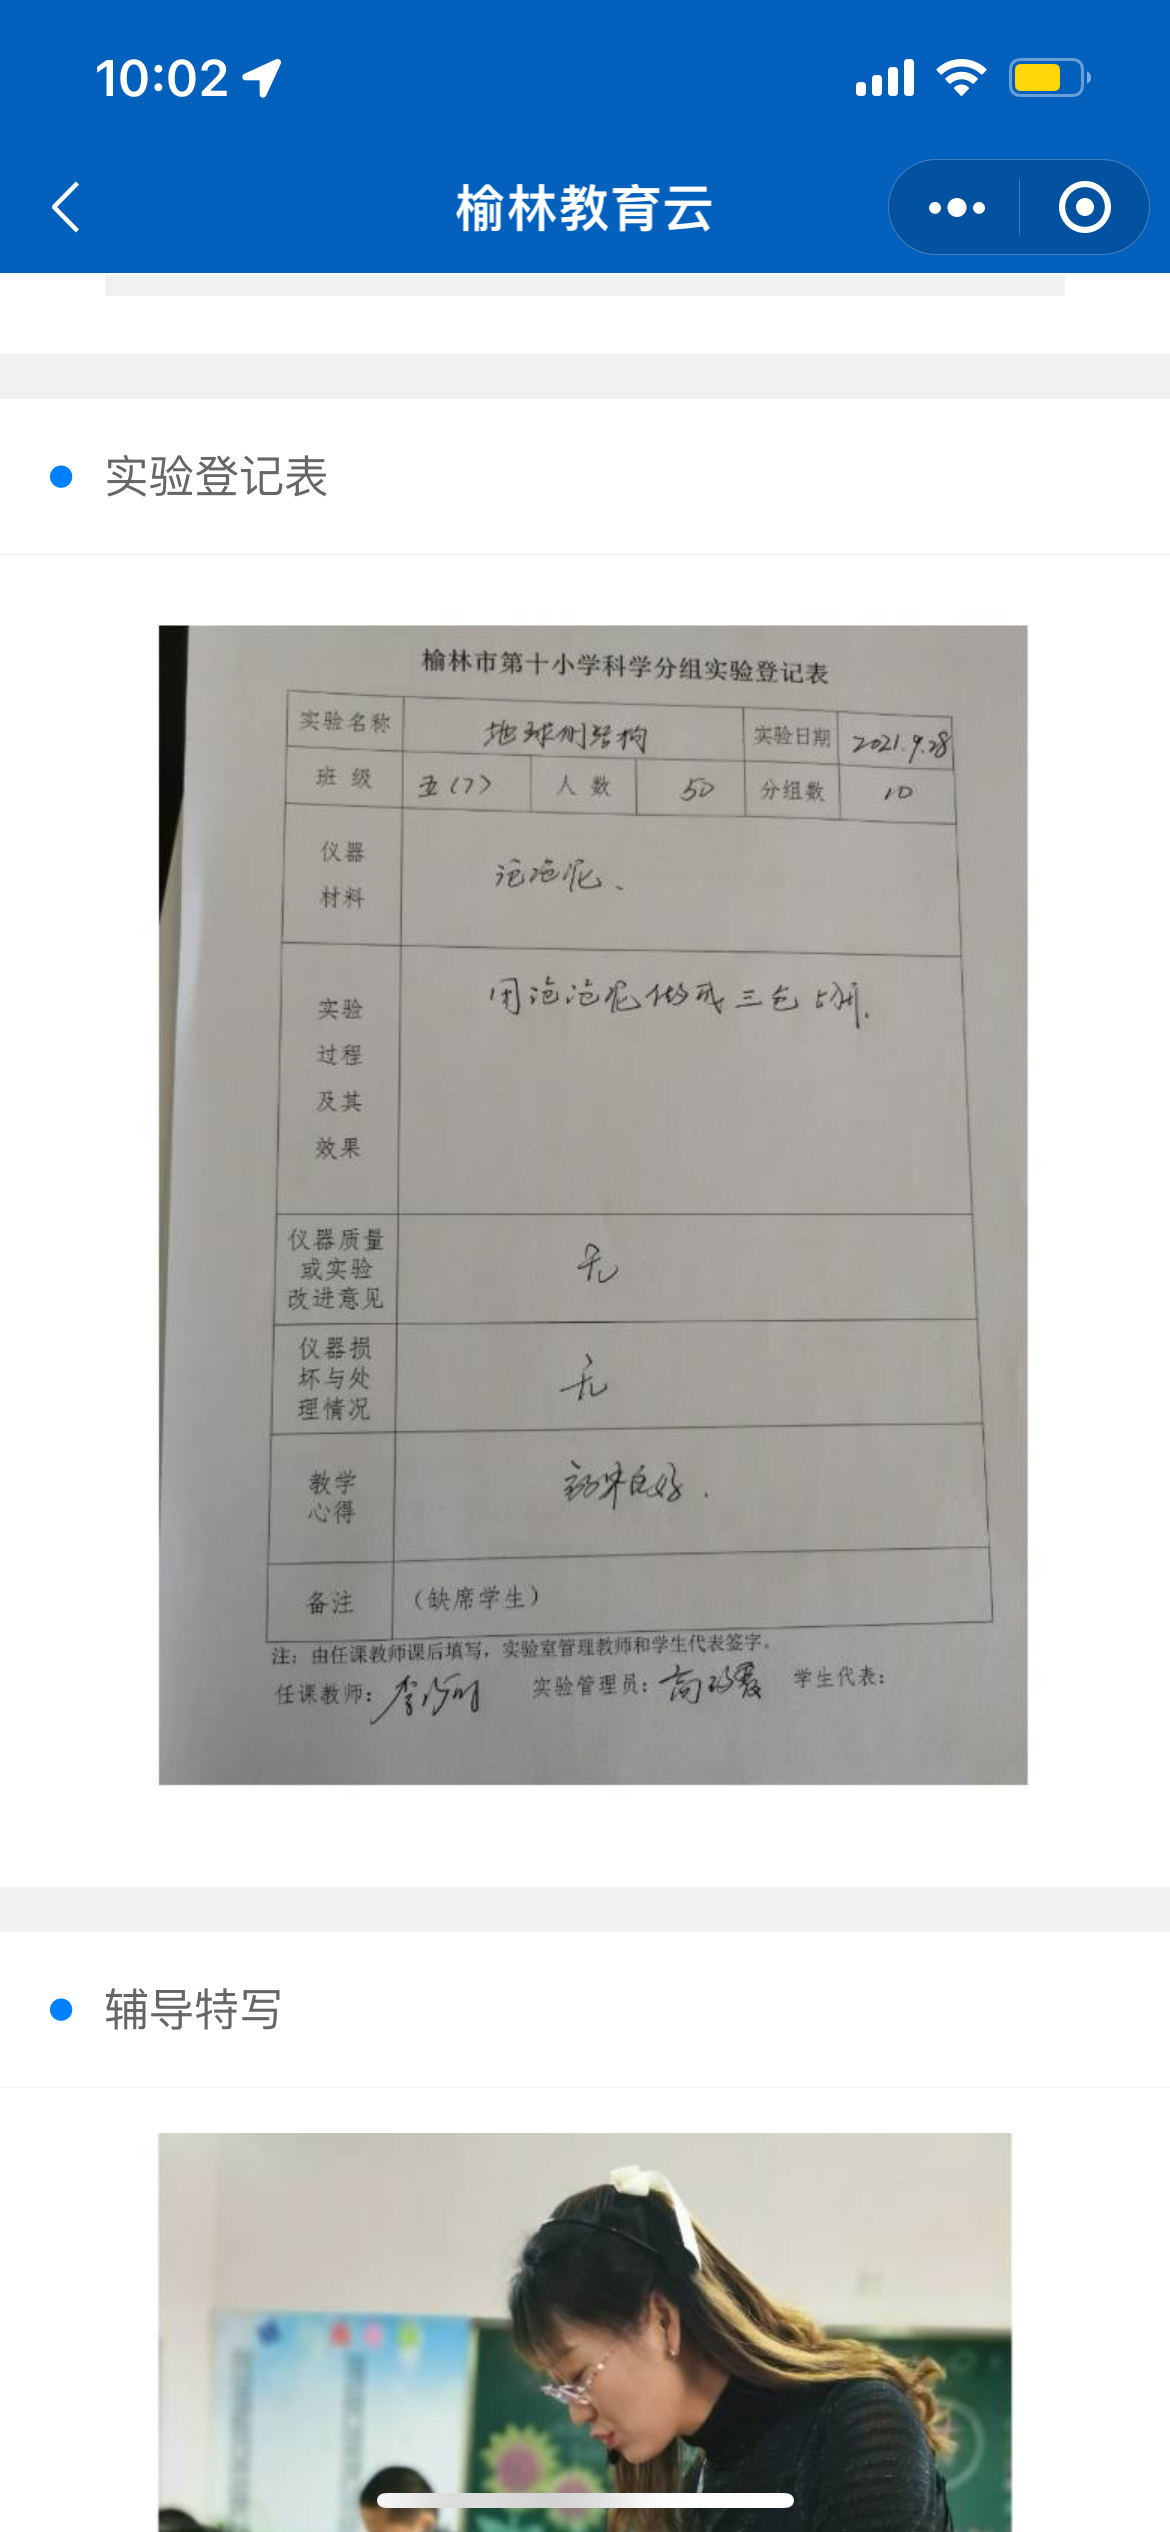 10:02
榆林教育云
实验登记表
榆林市第十小学科学分组实验登记表
实验名称 地球的结构 实验日期 2021.9.28
班 级 五(7) 人 数 50 分组数 10
仪器
材料
泡泡泥、
实验
过程
及其
效果
用泡泡泥做成三色
仪器质量
或实验
改进意见
无
仪器损
坏与处
理情况
无
教学
心得
效果良好.
备注 (缺席学生)
注: 由任课教师课后填写, 实验室管理教师和学生代表签字。
任课教师: 李 实验管理员: 高 学生代表:
辅导特写